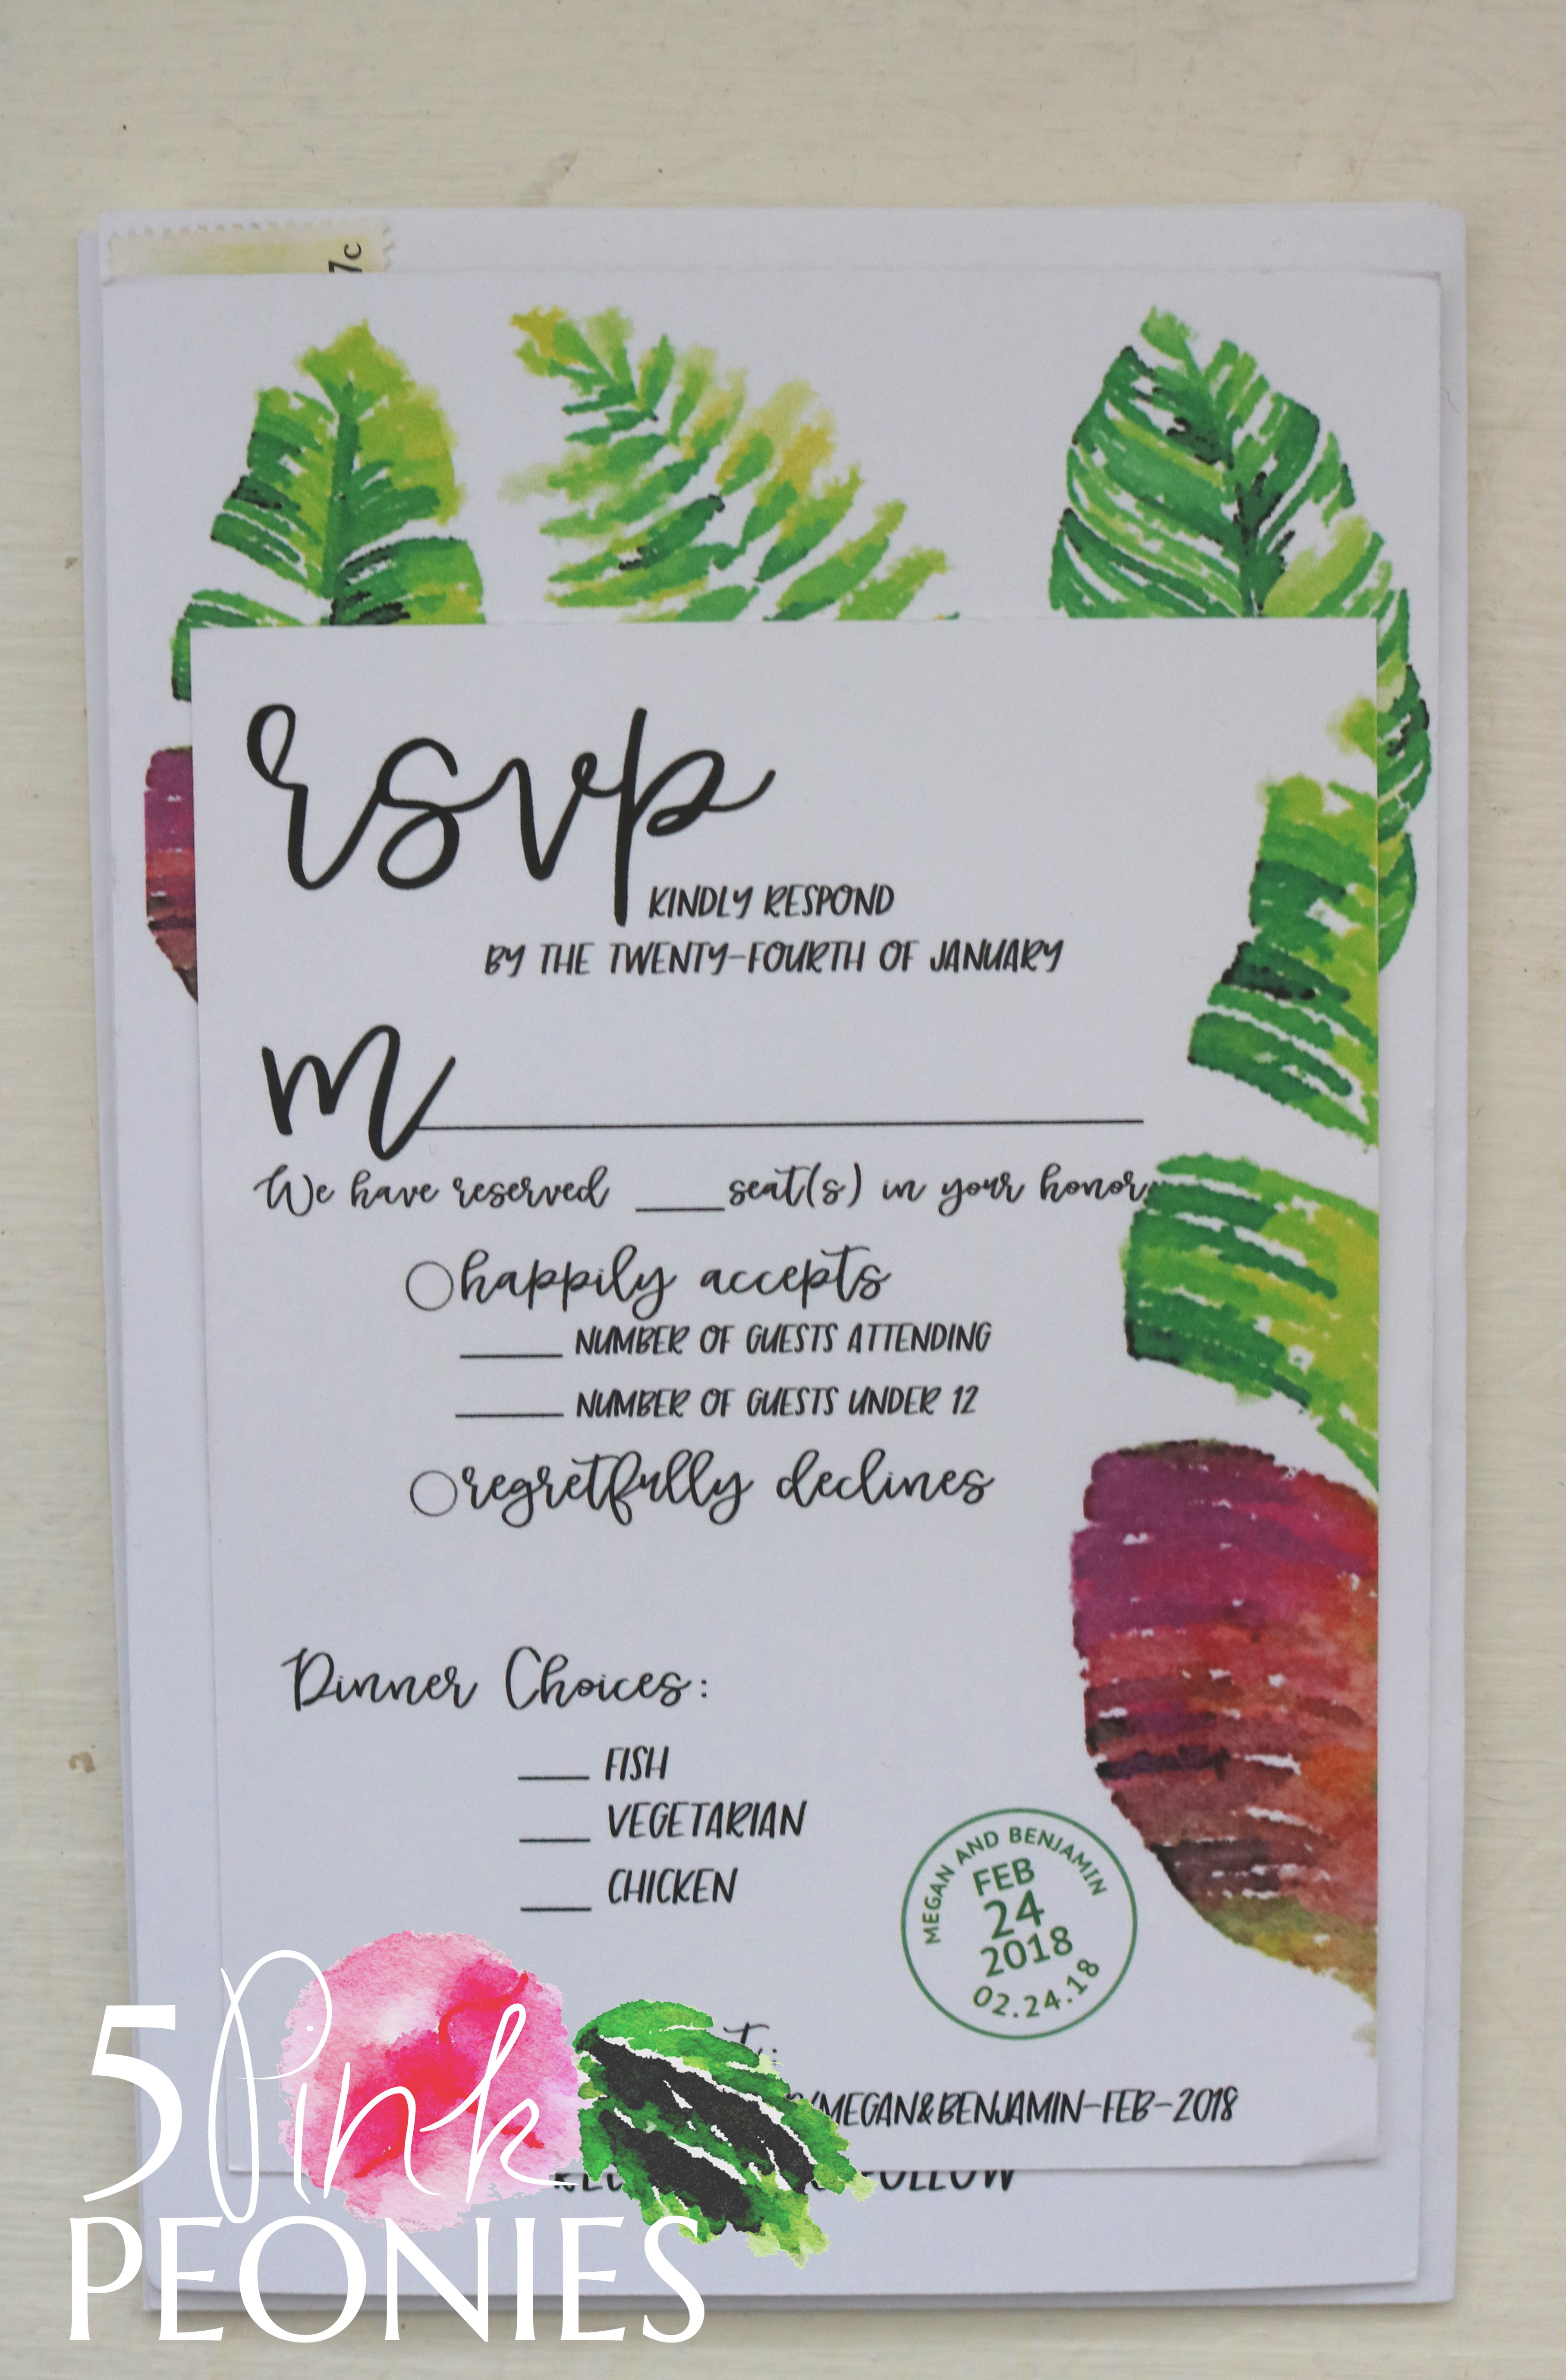 7c
rsvp
KINDLY RESPOND
BY THE TWENTY-FOURTH OF JANUARY
m
We have reserved ____ seat(s) in your honor.
happily accepts
____ NUMBER OF GUESTS ATTENDING
____ NUMBER OF GUESTS UNDER 12
regretfully declines
Dinner Choices:
____ FISH
____ VEGETARIAN
____ CHICKEN
MEGAN AND BENJAMIN
FEB
24
2018
02.24.18
/MEGAN&BENJAMIN-FEB-2018
5 Pink
PEONIES